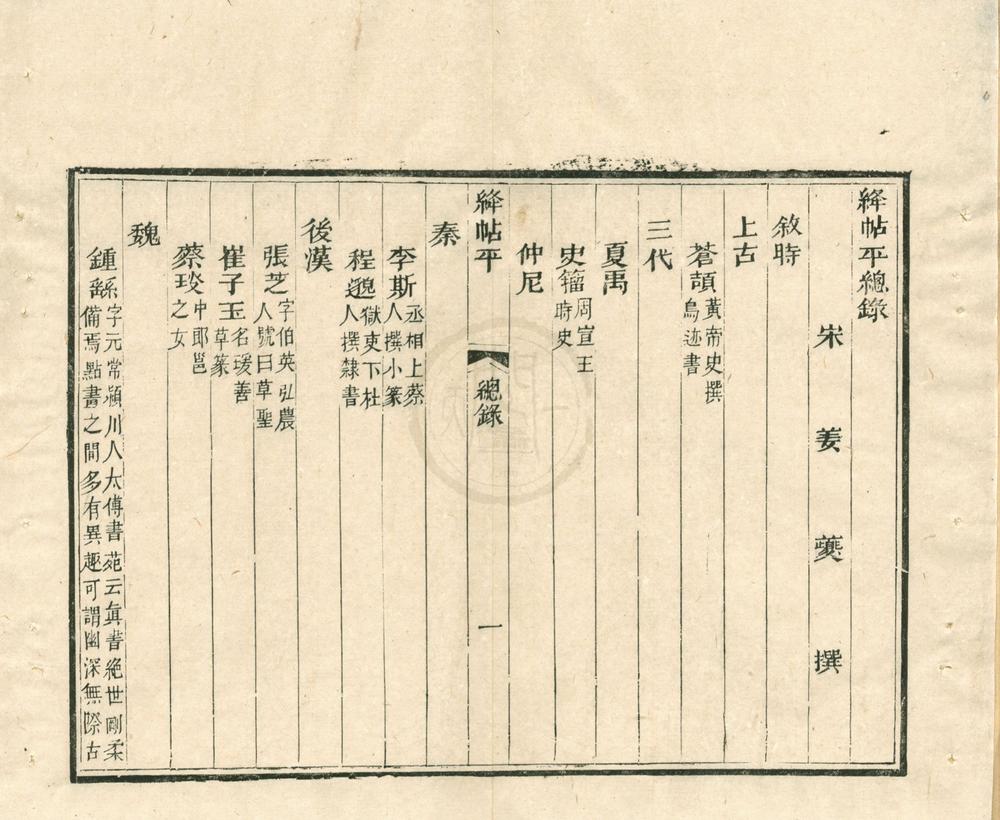 絳帖平總錄
宋姜夔撰
敘時
上古
蒼頡黃帝史撰
鳥迹書
三代
夏禹
史籀周宣王
時史
仲尼
絳帖平 總錄 一
秦
李斯丞相上蔡
人撰小篆
程邈獄吏下杜
人撰隸書
後漢
張芝字伯英弘農
人號曰草聖
崔子玉名瑗善
草篆
蔡琰中郎邕
之女
魏
鍾繇字元常潁川人太傅書苑云真書絕世剛柔
備焉點畫之間多有異趣可謂幽深無際古